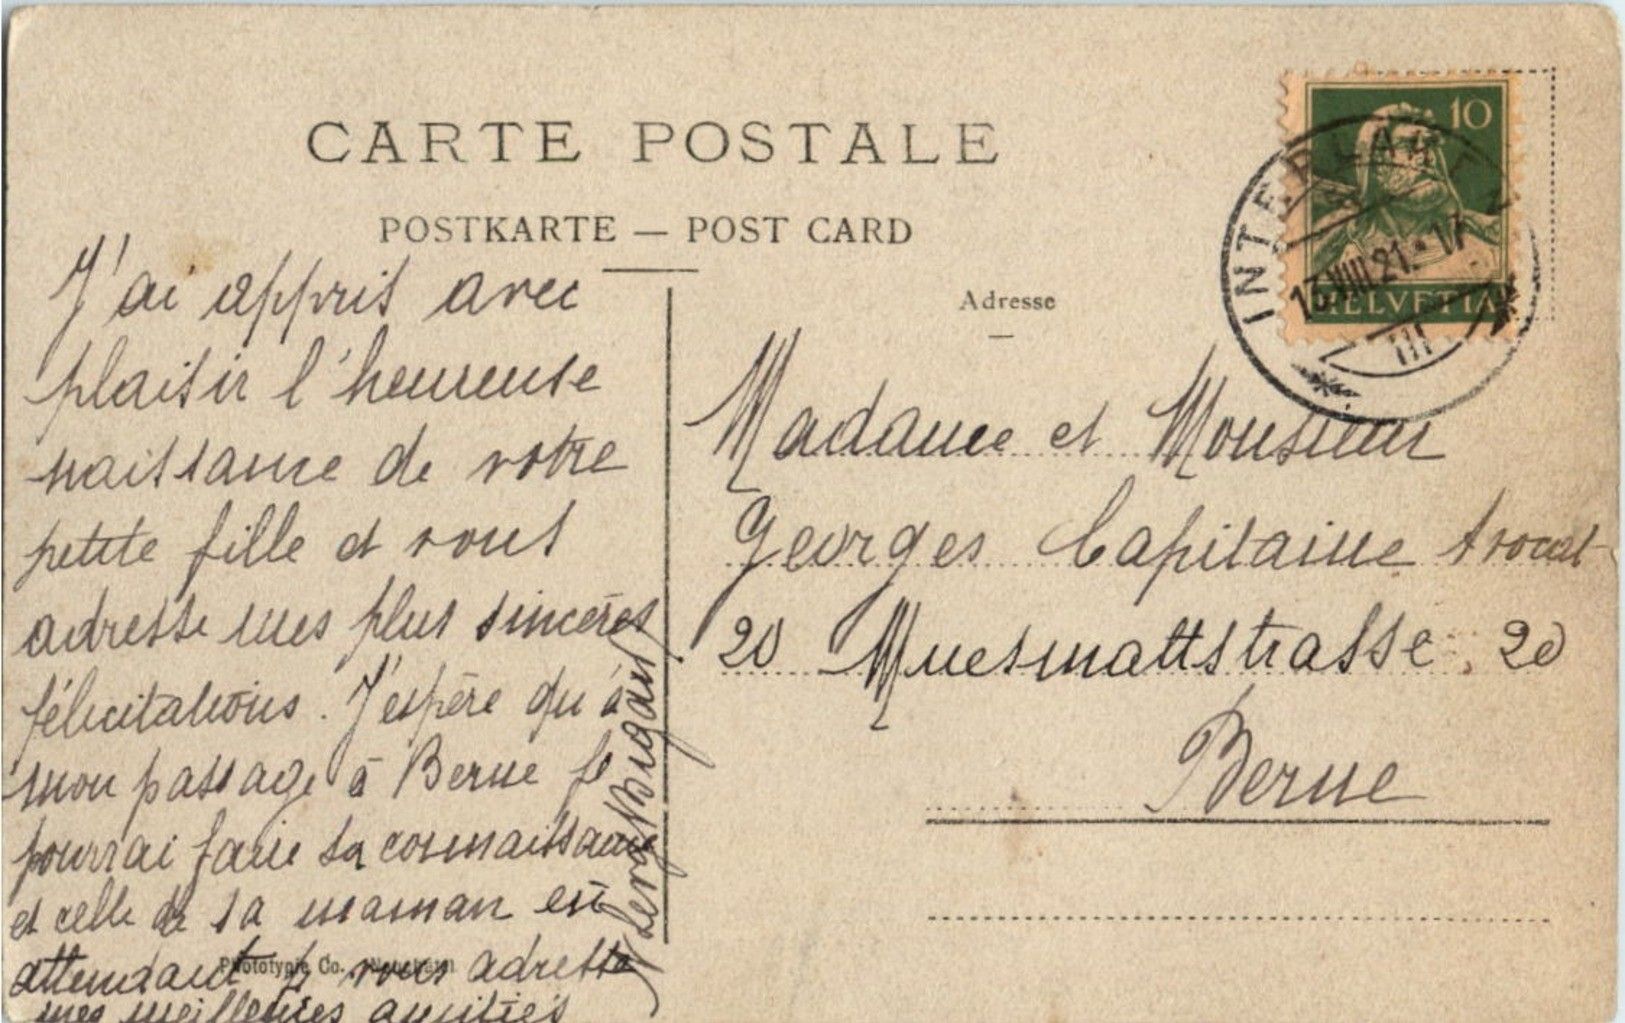 CARTE POSTALE
POSTKARTE — POST CARD
J'ai appris avec
plaisir l'heureuse
naissance de votre
petite fille et vous
adresse mes plus sincères
félicitations. J'espère qu'à
mon passage à Berne je
pourrai faire sa connaissance
et celle de sa maman en
attendant je vous adresse
mes meilleures amitiés
Phototypie Co.
Adresse
Madame et Monsieur
Georges Capitaine Avocat
20 Muesmattstrasse 20
Berne
10
HELVETIA
INTERLAKEN
13.VIII.21.-17
III